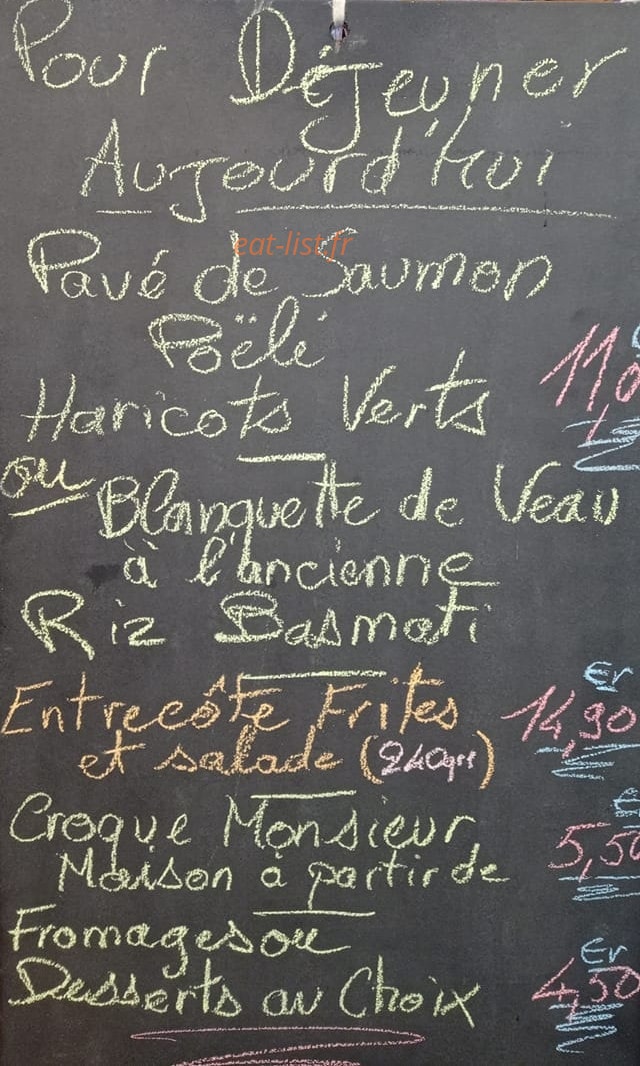 Pour Déjeuner
Aujourd'hui
eat-list.fr
Pavé de Saumon
Poëlé
Haricots Verts
ou
Blanquette de Veau
à l'ancienne
Riz Basmati
Entrecôte Frites
et salade (240grs)
Er
14,90
Croque Monsieur
Maison à partir de
5,50
Fromages ou
Desserts au Choix
Er
4,50